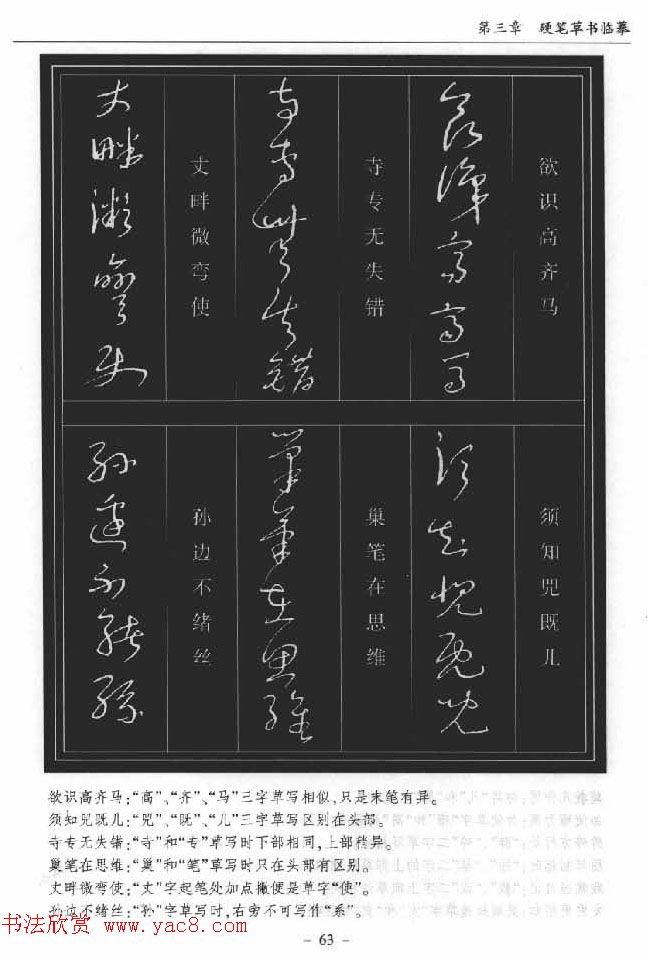 第三章 硬笔草书临摹
欲识高齐马
寺专无失错
丈畔微弯使
须知兕既儿
巢笔在思维
孙边不绪丝
欲识高齐马:“高”、“齐”、“马”三字草写相似,只是末笔有异。
须知兕既儿:“兕”、“既”、“儿”三字草写区别在头部。
寺专无失错:“寺”和“专”草写时下部相同,上部稍异。
巢笔在思维:“巢”和“笔”草写时只在头部有区别。
丈畔微弯使:“丈”字起笔处加点撇便是草字“使”。
孙边不绪丝:“孙”字草写时,右旁不可写作“系”。
书法欣赏 www.yac8.com
- 63 -